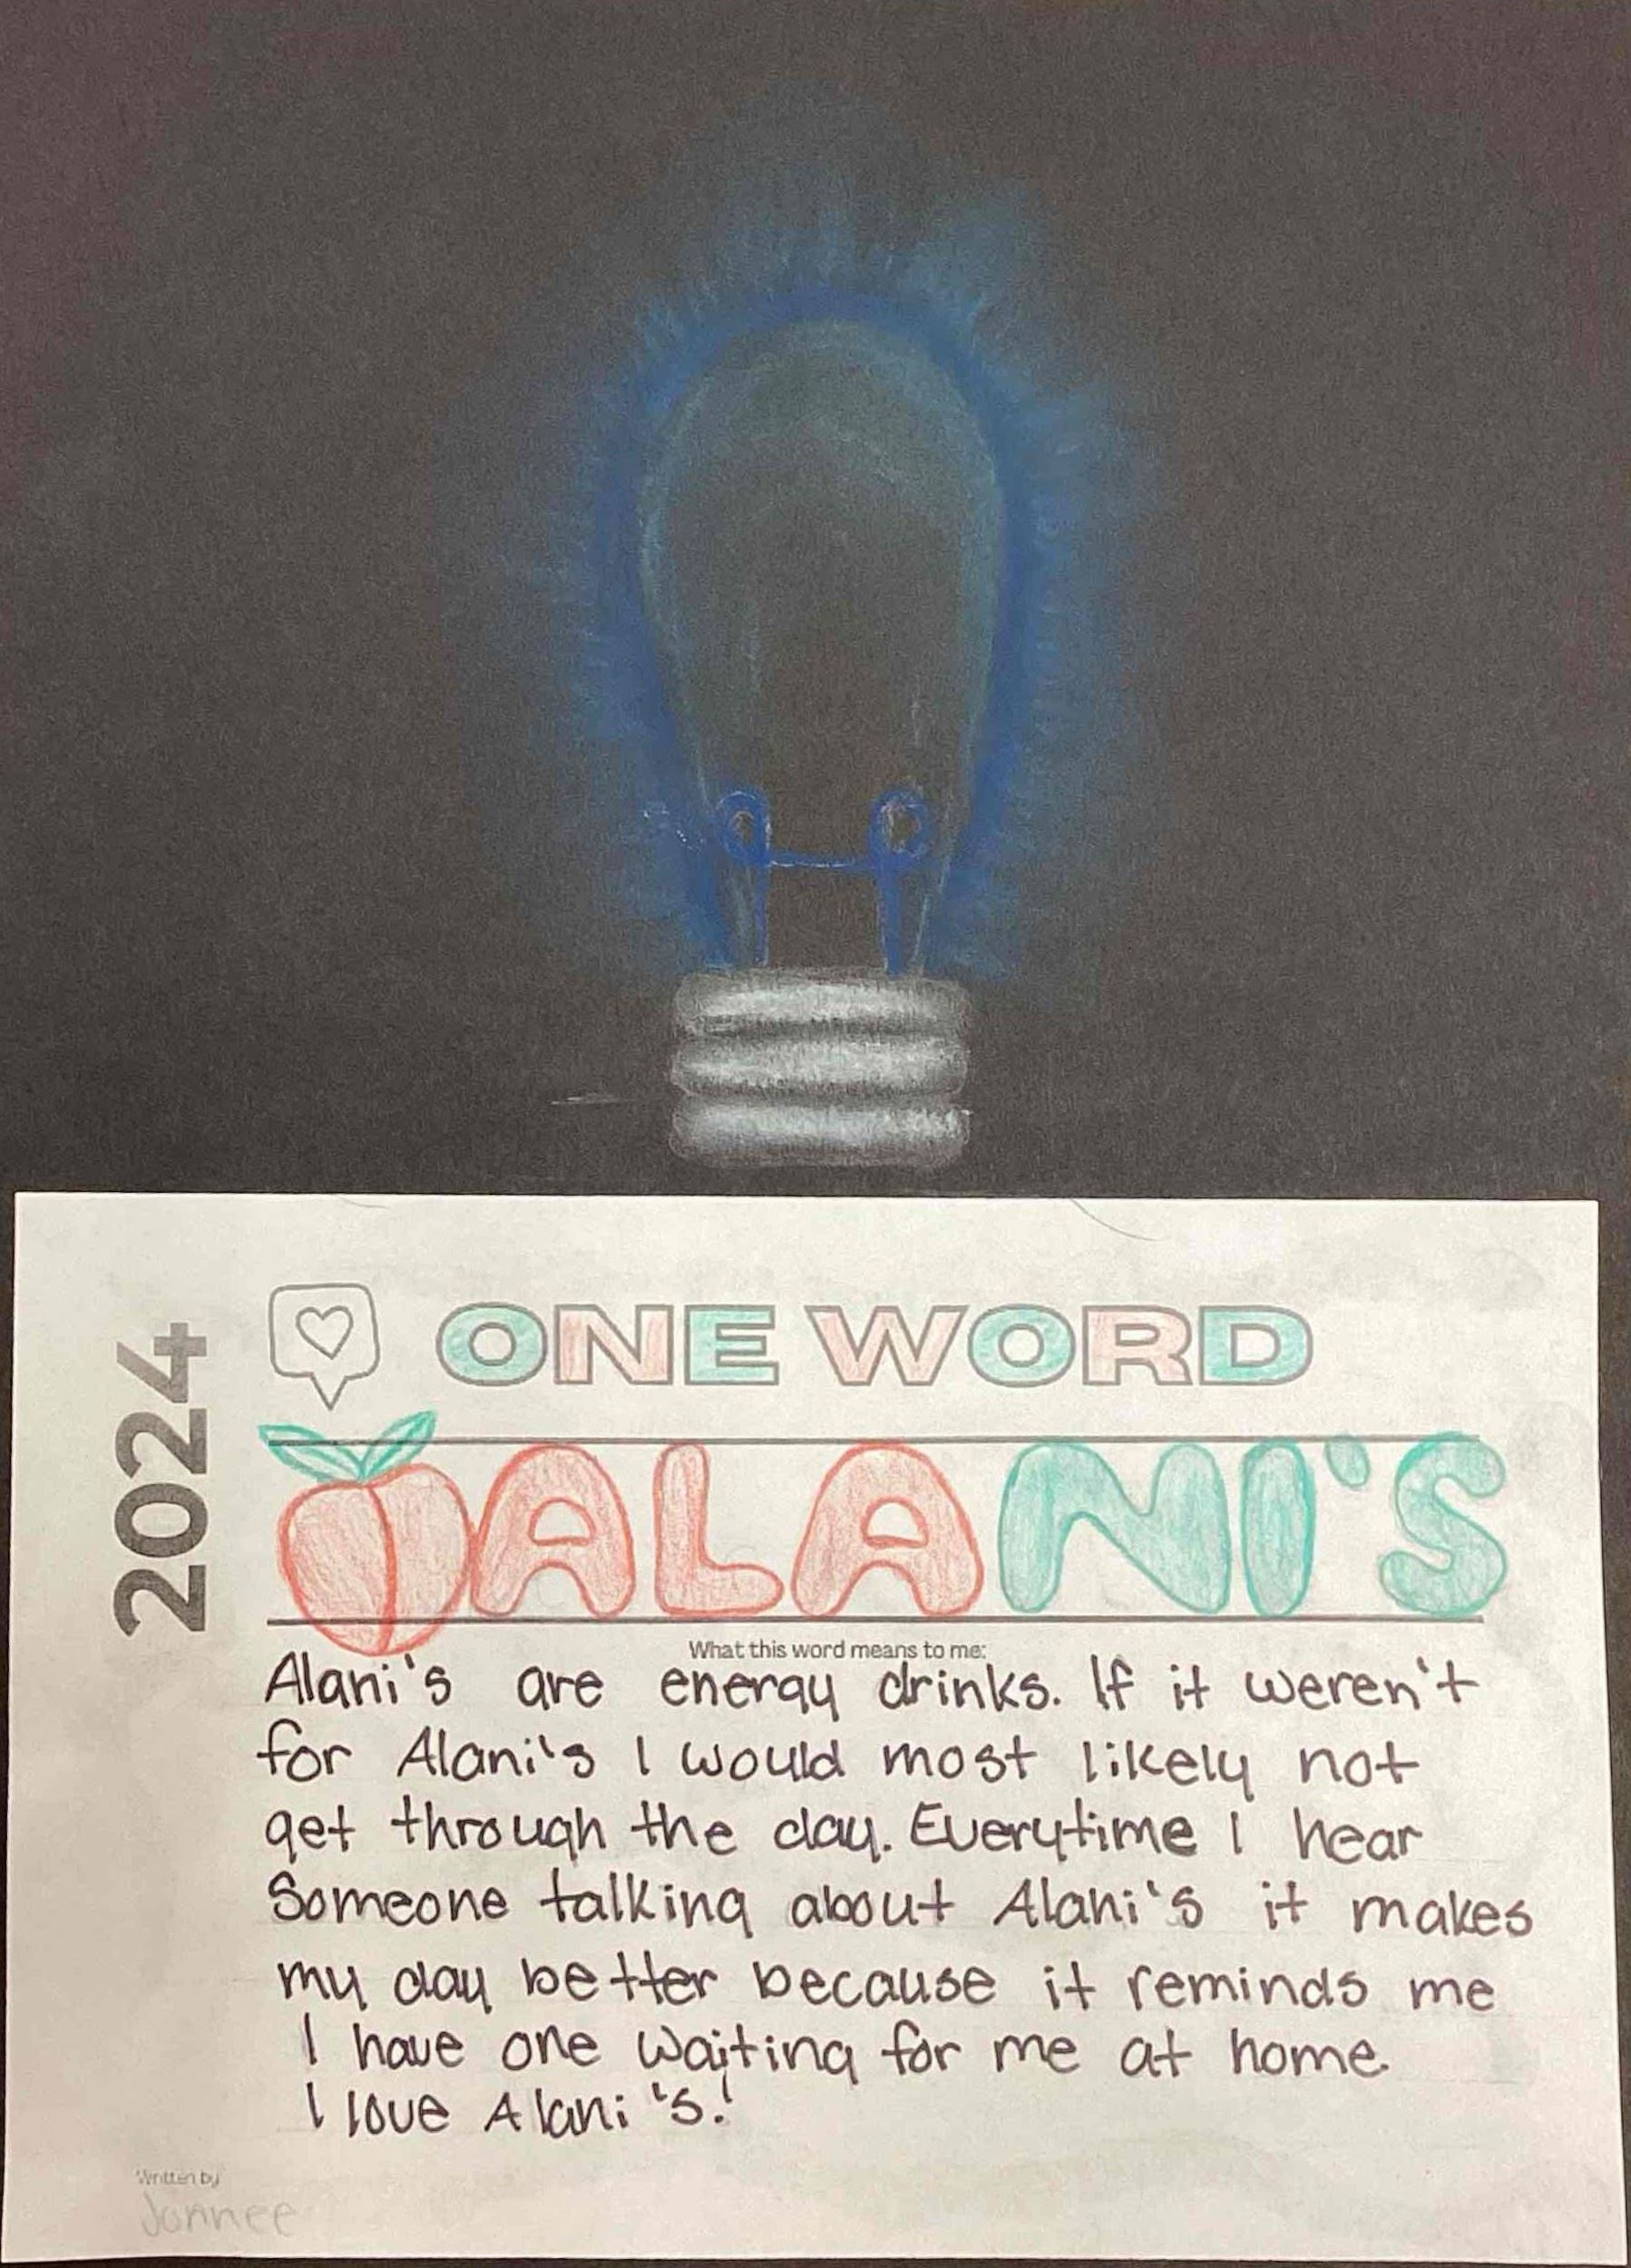 2024
ONE WORD
ALANI'S
What this word means to me:
Alani's are energy drinks. If it weren't
for Alani's I would most likely not
get through the day. Everytime I hear
Someone talking about Alani's it makes
my day better because it reminds me
I have one waiting for me at home.
I love Alani's!
Written by
Jannee